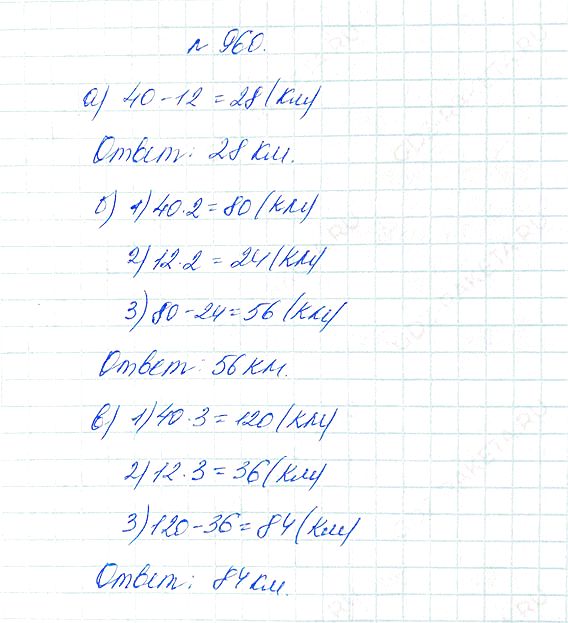 № 960.
а) 40 - 12 = 28 (км)
Ответ: 28 км.
б) 1) 40 · 2 = 80 (км)
2) 12 · 2 = 24 (км)
3) 80 - 24 = 56 (км)
Ответ: 56 км.
в) 1) 40 · 3 = 120 (км)
2) 12 · 3 = 36 (км)
3) 120 - 36 = 84 (км)
Ответ: 84 км.